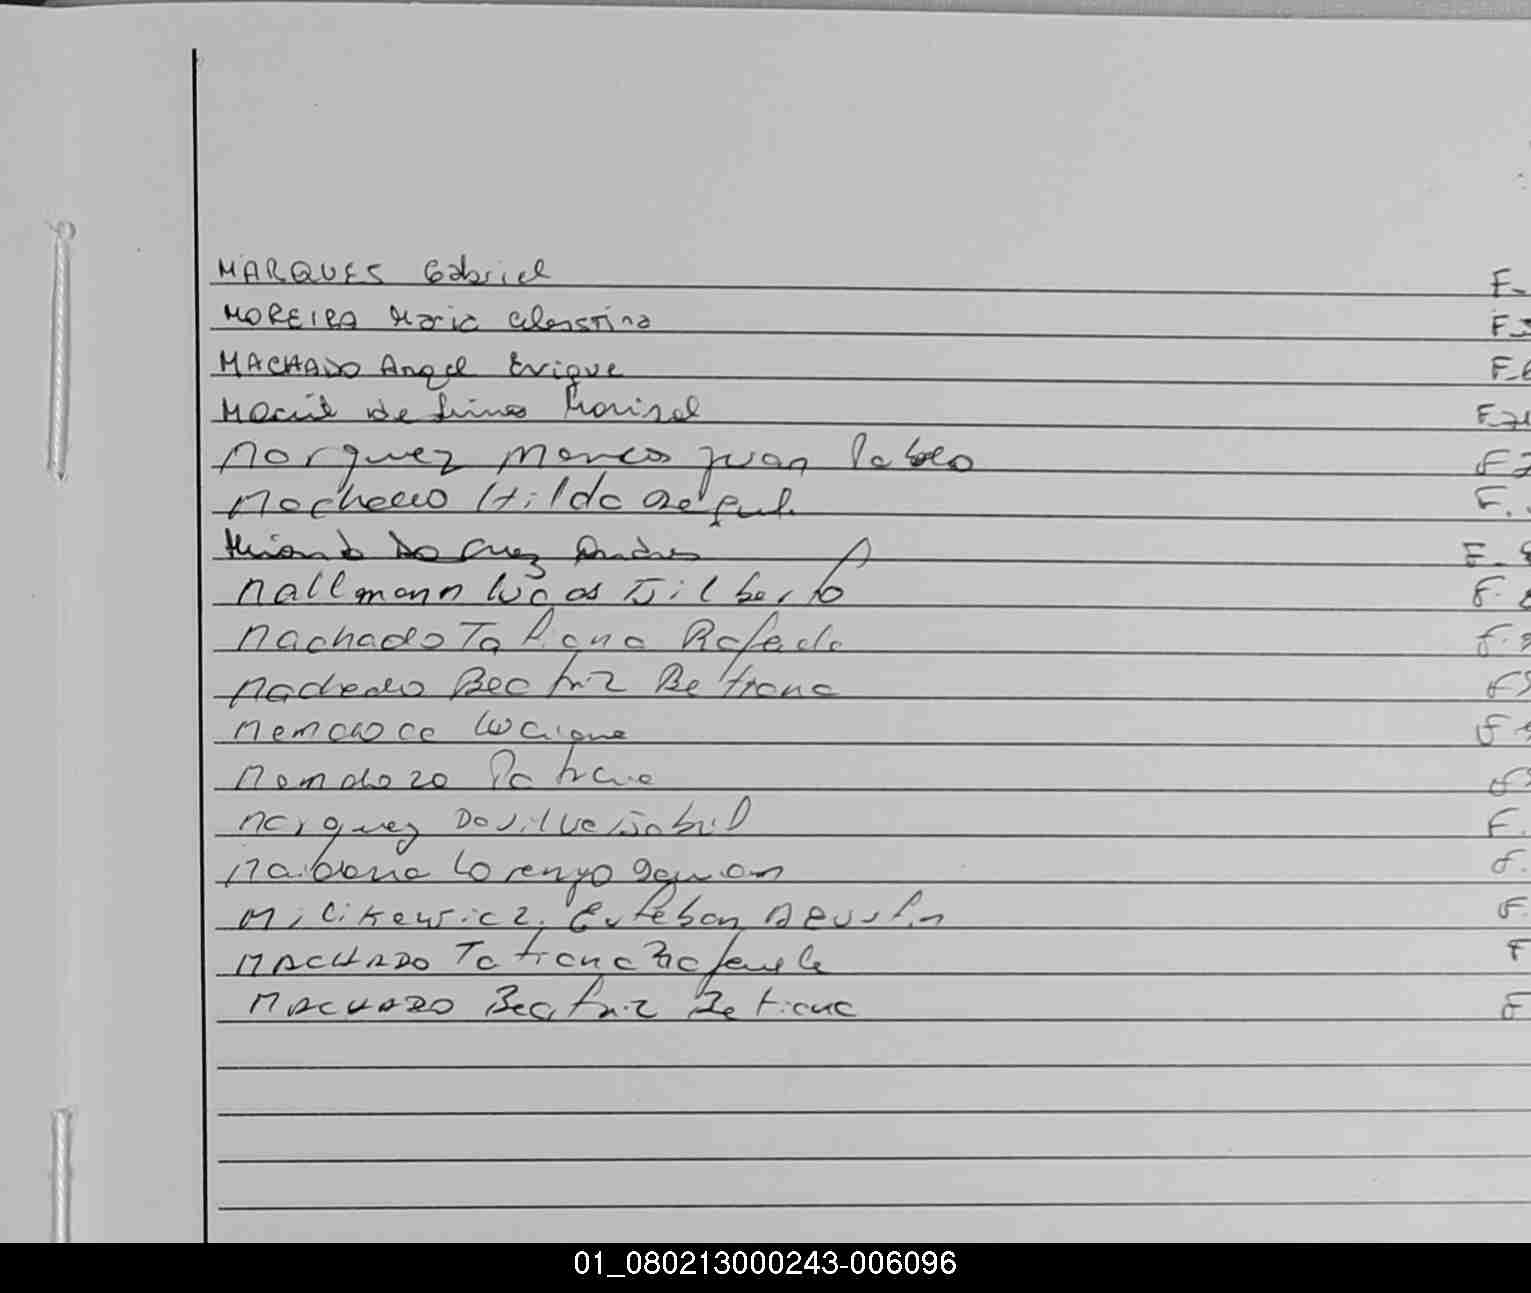 MARQUES Gabriel F-
MOREIRA Maria Celestina F-
MACHADO Angel Enrique F-6
Maciel de Lima Marisol F-
Marquez Marcos Juan Pablo F
Machado Hilda F.
Miranda Da Cruz Andres F.
Mallmann Lucas Gilberto F.
Machado Tatiana Rafaela F.
Machado Beatriz Betiana F
Mendoca Luciana F
Mendoza Patricia F
Marquez Da Silva Gabriel F.
Maidana Lorenzo Damian F.
Milikewicz, Esteban Agustin F.
MACHADO Tatiana Rafaela F
MACHADO Beatriz Betiana F
01_080213000243-006096